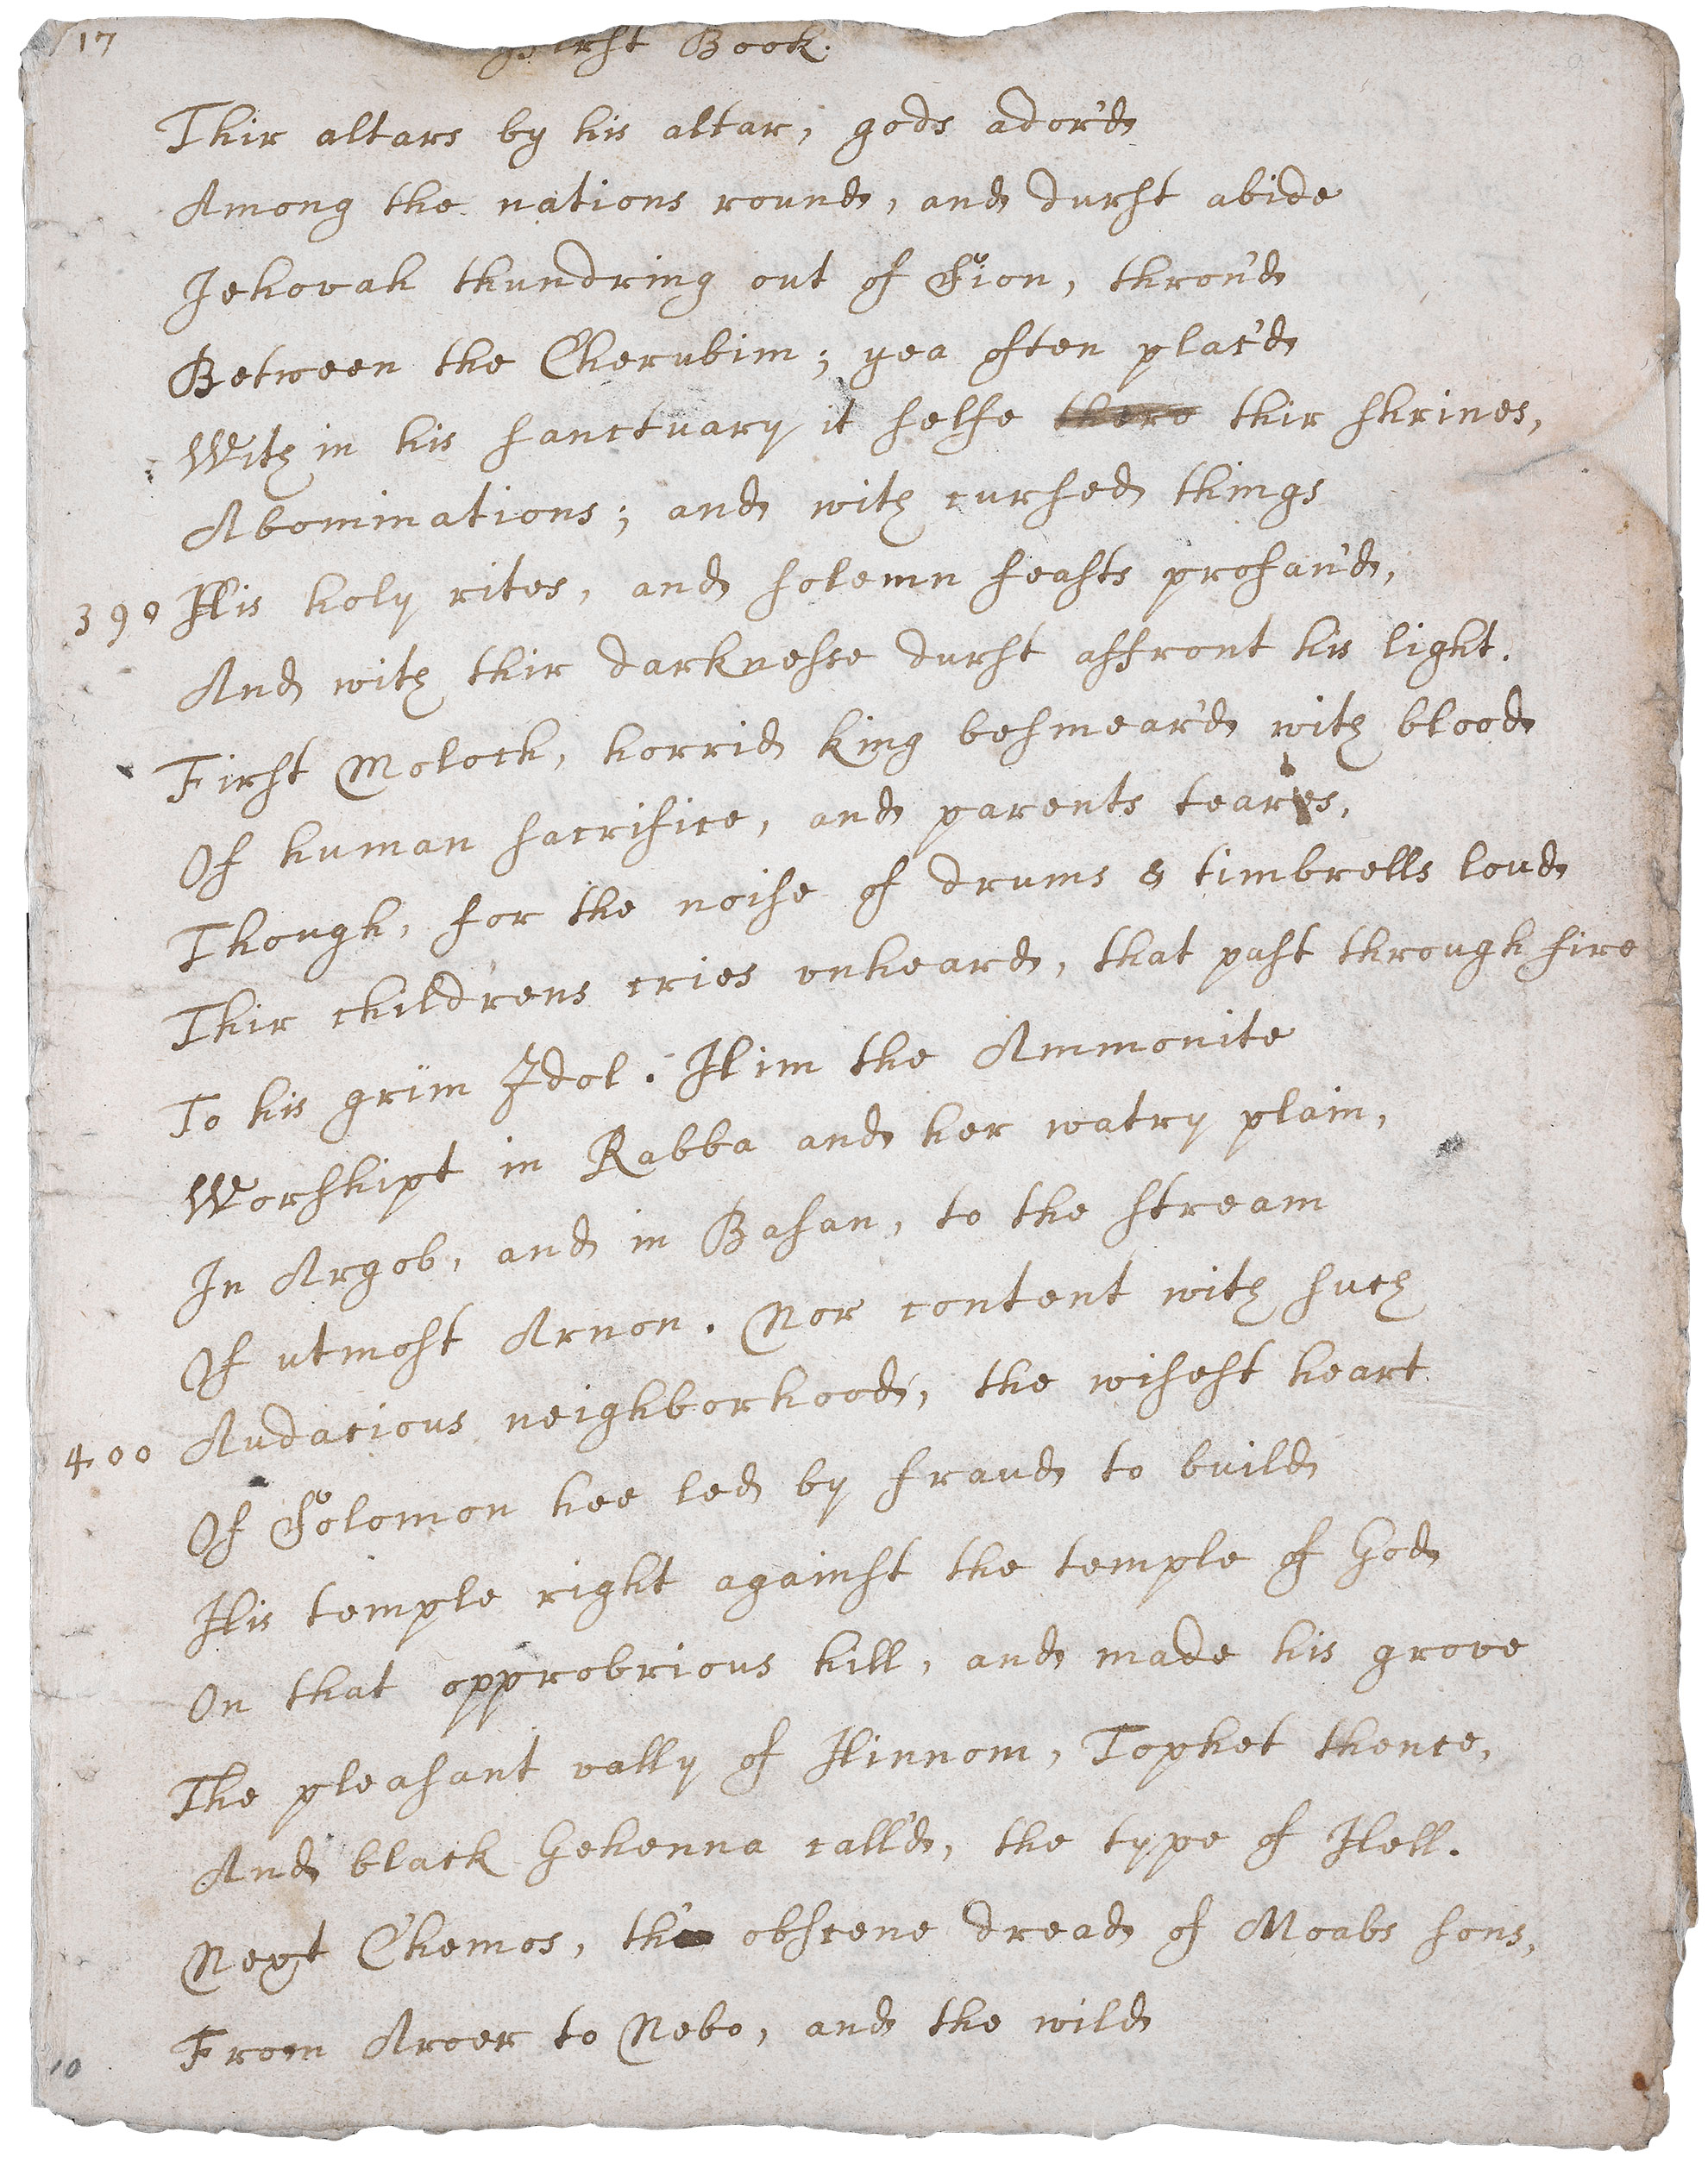 17
First Book.
Thir altars by his altar, gods ador'd
Among the nations round, and durst abide
Jehovah thundring out of Sion, thron'd
Between the Cherubim; yea often plac'd
With in his sanctuary it selfe there thir shrines,
Abominations; and with cursed things
390 His holy rites, and solemn feasts profan'd,
And with thir darknesse durst affront his light.
First Moloch, horrid king besmear'd with blood
Of human sacrifice, and parents teares,
Though, for the noise of drums & timbrells loud
Thir children's cries unheard, that past through fire
To his grim Idol. Him the Ammonite
Worshipt in Rabba and her watry plain,
In Argob, and in Basan, to the stream
Of utmost Arnon. Nor content with such
400 Audacious neighborhood, the wisest heart
Of Solomon hee led by fraud to build
His temple right against the temple of God
On that opprobrious hill, and made his grove
The pleasant vally of Hinnom, Tophet thence,
And black Gehenna call'd, the type of Hell.
Next Chemos, th' obscene dread of Moabs sons,
From Aroer to Nebo, and the wild
10